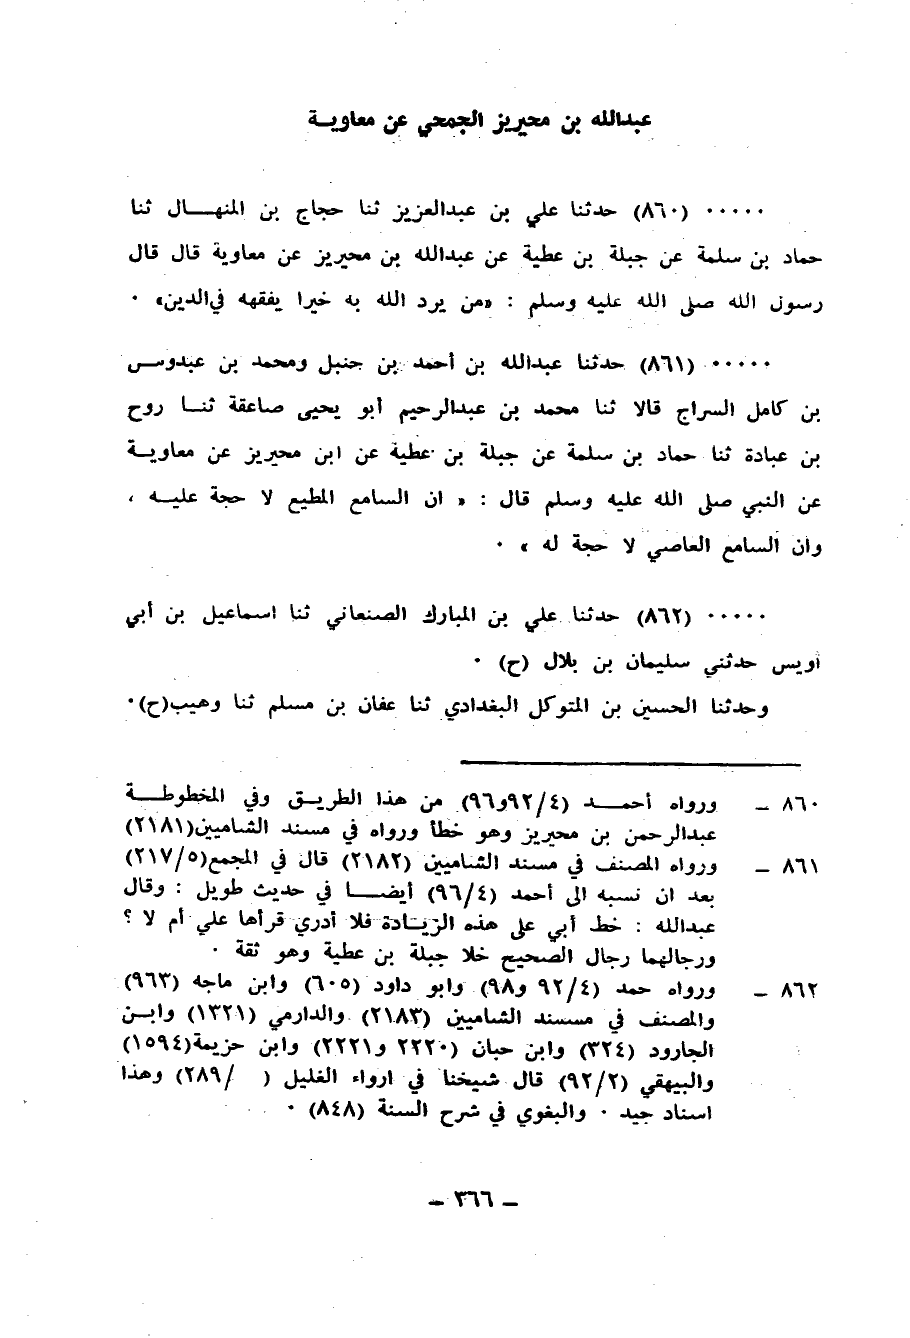 عبدالله بن محيريز الجمحي عن معاويــة
٠٠٠٠٠ (٨٦٠) حدثنا علي بن عبدالعزيز ثنا حجاج بن المنهـــال ثنا
حماد بن سلمة عن جبلة بن عطية عن عبدالله بن محيريز عن معاوية قال قال
رسول الله صلى الله عليه وسلم : «من يرد الله به خيرا يفقهه في‌الدين» ٠
٠٠٠٠٠ (٨٦١) حدثنا عبدالله بن أحمد بن حنبل ومحمد بن عبدوس
بن كامل السراج قالا ثنا محمد بن عبدالرحيم أبو يحيى صاعقة ثنــا روح
بن عبادة ثنا حماد بن سلمة عن جبلة بن عطية عن ابن محيريز عن معاويــة
عن النبي صلى الله عليه وسلم قال : « ان السامع المطيع لا حجة عليــه ،
وان السامع العاصي لا حجة له » ٠
٠٠٠٠٠ (٨٦٢) حدثنا علي بن المبارك الصنعاني ثنا اسماعيل بن أبي
أويس حدثني سليمان بن بلال (ح) ٠
وحدثنا الحسين بن المتوكل البغدادي ثنا عفان بن مسلم ثنا وهيب(ح)٠
٨٦٠ ـ ورواه أحمـــد (٩٢/٤و٩٦) من هذا الطريــق وفي المخطوطــة
عبدالرحمن بن محيريز وهو خطأ ورواه في مسند الشاميين(٢١٨١)
٨٦١ ـ ورواه المصنف في مسند الشاميين (٢١٨٢) قال في المجمع(٢١٧/٥)
بعد ان نسبه الى أحمد (٩٦/٤) أيضـــا في حديث طويل : وقال
عبدالله : خط أبي على هذه الزيـادة فلا أدري قرأها علي أم لا ؟
ورجالهما رجال الصحيح خلا جبلة بن عطية وهو ثقة ٠
٨٦٢ ـ ورواه حمد (٩٢/٤ و٩٨) وابو داود (٦٠٥) وابن ماجه (٩٦٣)
والمصنف في مسسند الشاميين (٢١٨٣) والدارمي (١٣٢١) وابــن
الجارود (٣٢٤) وابن حبان (٢٢٢٠ و٢٢٢١) وابن حزيمة(١٥٩٤)
والبيهقي (٩٢/٢) قال شيخنا في ارواء الغليل ( /٢٨٩) وهذا
اسناد جيد ٠ والبغوي في شرح السنة (٨٤٨) ٠
ـ ٣٦٦ ـ